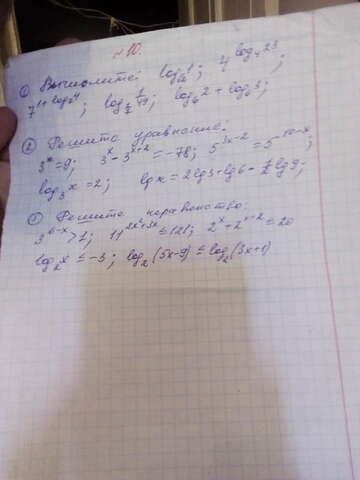 № 10.
① Вычислите: log₆ 1; 4^(log₄ 23);
7^(1+log₇ 4); log_(1/7) 1/49; log₆ 2 + log₆ 3;
② Решите уравнение:
3^x = 9; 3^x - 3^(x+2) = -78; 5^(3x-2) = 5^(-10-x);
log₃ x = 2; lg x = 2lg3 + lg6 - 1/2 lg9;
③ Решите неравенство:
3^(6-x) > 1; 11^(2x²+3x) ≤ 121; 2^x + 2^(x+2) ≤ 20
log₂ x ≤ -3; log₂ (5x-9) ≤ log₂ (3x+1)